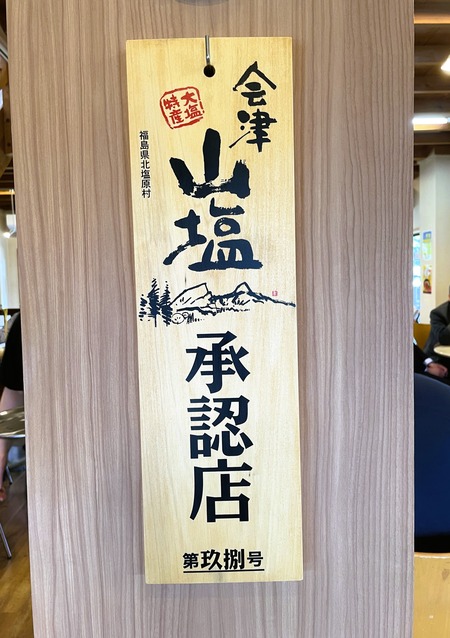 会津
大塩
特産
福島県北塩原村
山塩
承認店
第玖捌号